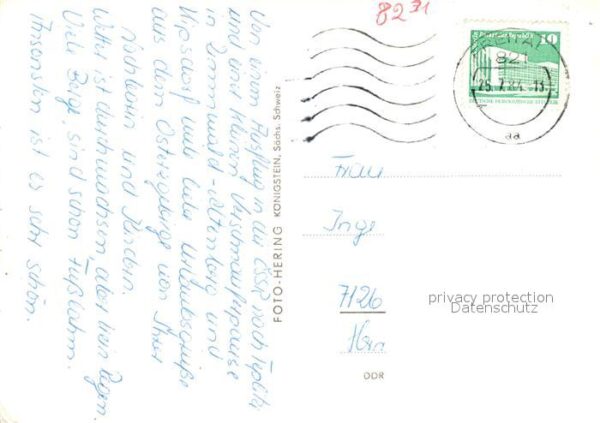 Von einem Ausflug in die CSSR nach Teplitz
und einer kleinen Verschnaufpause
in Zinnwald-Altenberg und
Kipsdorf viele liebe Urlaubsgrüße
aus dem Osterzgebirge von Ihrer
Nachbarin und Kindern.
Wetter ist durchwachsen, aber kein Regen.
Viele Berge, sind schon Fußlahm.
Ansonsten ist es sehr schön.
FOTO-HERING KÖNIGSTEIN, Sächs. Schweiz
82
10
FREITAL
82
25.7.84
aa
Frau
Inge
7126
privacy protection
Datenschutz
DDR